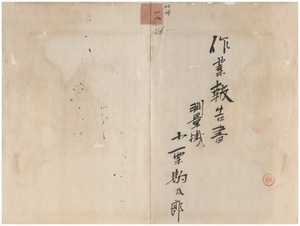 作業報告書
測量掛
小栗駒次郎